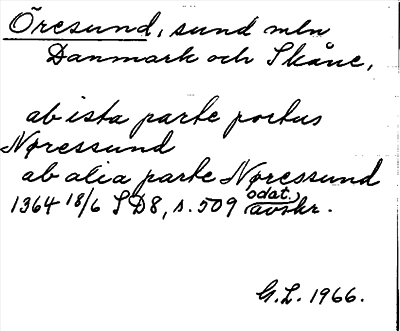 Öresund, sund mln
Danmark och Skåne,
ab ista parte portus
Nøressund
ab alia parte Nøressund
1364 18/6 SD8, s. 509 odat. avskr.
G.L. 1966.